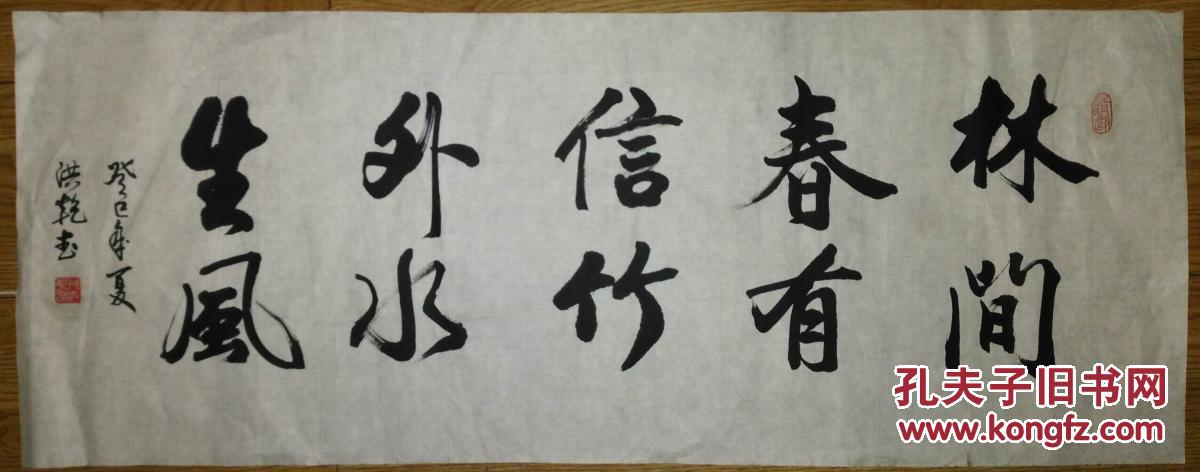 林間
春有
信竹
外水
生風
癸巳年夏
洪乾书
孔夫子旧书网
www.kongfz.com